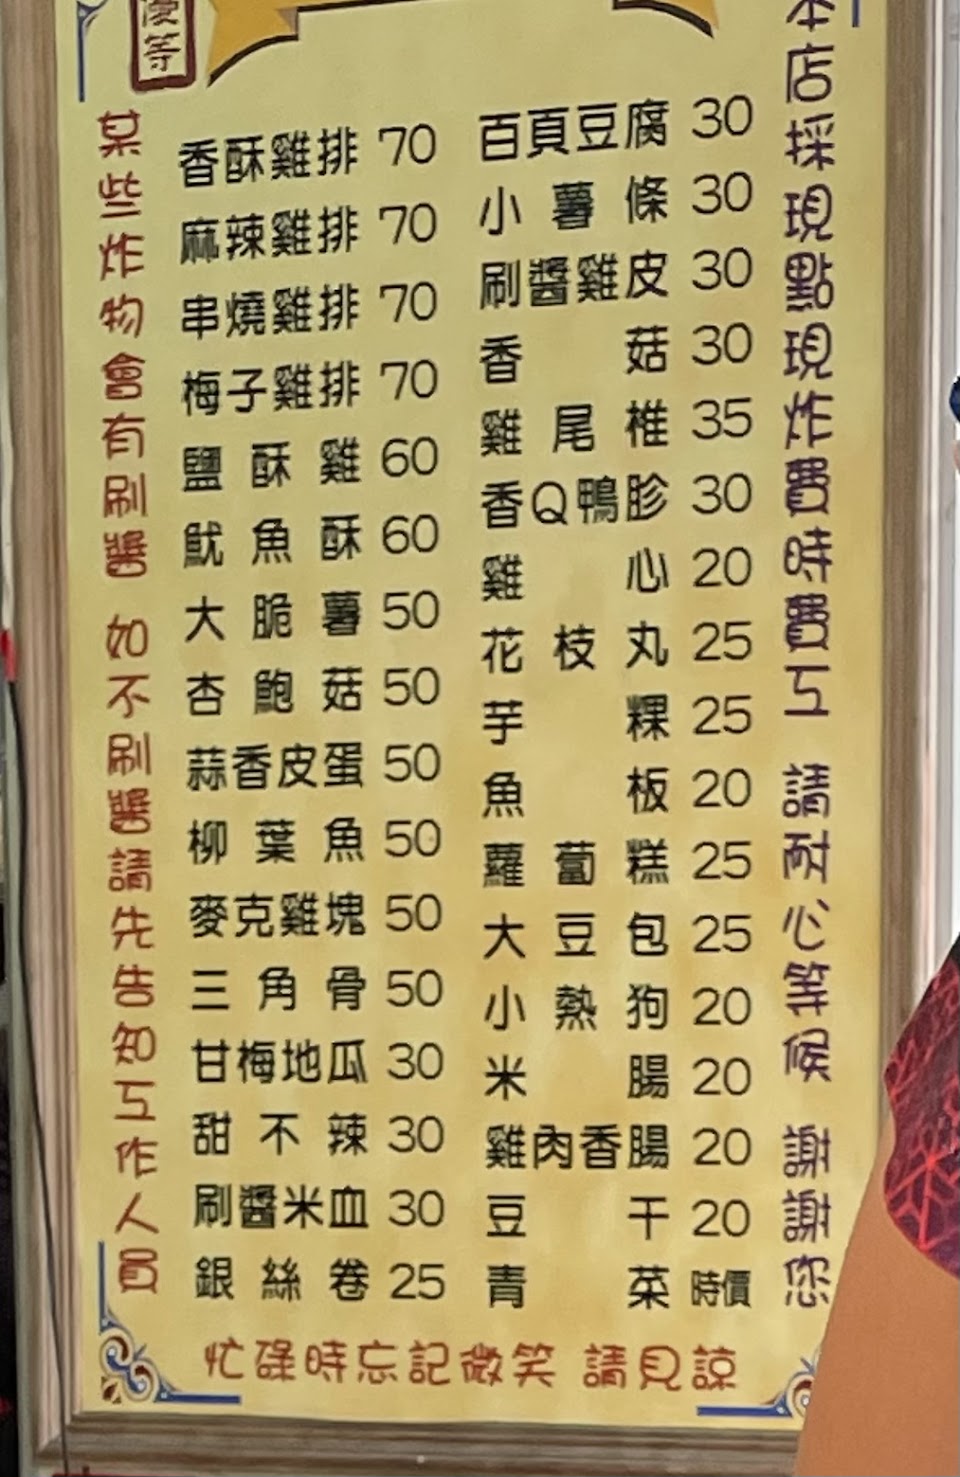 優等
某些炸物會有刷醬 如不刷醬請先告知工作人員
香酥雞排 70
麻辣雞排 70
串燒雞排 70
梅子雞排 70
鹽酥雞 60
魷魚酥 60
大脆薯 50
杏鮑菇 50
蒜香皮蛋 50
柳葉魚 50
麥克雞塊 50
三角骨 50
甘梅地瓜 30
甜不辣 30
刷醬米血 30
銀絲卷 25
百頁豆腐 30
小薯條 30
刷醬雞皮 30
香菇 30
雞尾椎 35
香Q鴨胗 30
雞心 20
花枝丸 25
芋粿 25
魚板 20
蘿蔔糕 25
大豆包 25
小熱狗 20
米腸 20
雞肉香腸 20
豆干 20
青菜 時價
本店採現點現炸費時費工 請耐心等候 謝謝您
忙碌時忘記微笑 請見諒